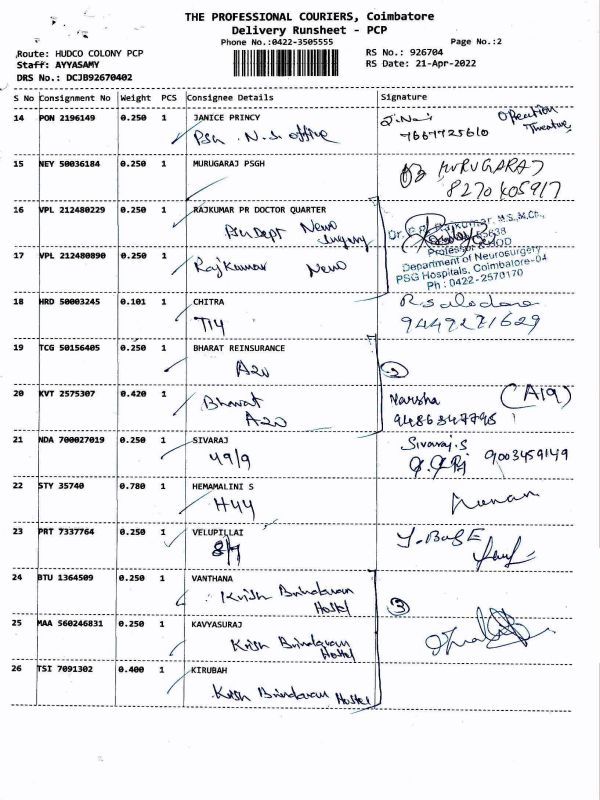 THE PROFESSIONAL COURIERS, Coimbatore
Delivery Runsheet - PCP
Phone No.:0422-3505555
Page No.:2
Route: HUDCO COLONY PCP
RS No.: 926704
Staff: AYYASAMY
RS Date: 21-Apr-2022
DRS No.: DCJB92670402
S No Consignment No Weight PCS Consignee Details Signature
14 PON 2196149 0.250 1 JANICE PRINCY
PSG N.S. office
7667725610
Operation Theatre
15 NEY 50036184 0.250 1 MURUGARAJ PSGH
MURUGARAJ
8270405917
16 VPL 212480229 0.250 1 RAJKUMAR PR DOCTOR QUARTER
Dept Neuro Surgery
17 VPL 212480890 0.250 1
Rajkumar Neuro
Professor & HOD
Department of Neurosurgery
PSG Hospitals, Coimbatore-04
Ph : 0422-2570170
18 HRD 50003245 0.101 1 CHITRA
T14
9449271629
19 TCG 50156405 0.250 1 BHARAT REINSURANCE
A20
2
20 KVT 2575307 0.420 1
Bharat
A20
Harsha (A19)
9486347795
21 NDA 700027019 0.250 1 SIVARAJ
49/9
Sivaraj.S
9003459149
22 STY 35740 0.780 1 HEMAMALINI S
H44
23 PRT 7337764 0.250 1 VELUPILLAI
8/7
24 BTU 1364509 0.250 1 VANTHANA
Krish Brindavan
Hostel
3
25 MAA 560246831 0.250 1 KAVYASURAJ
Krish Brindavan
Hostel
26 TSI 7091302 0.400 1 KIRUBAH
Krish Brindavan Hostel